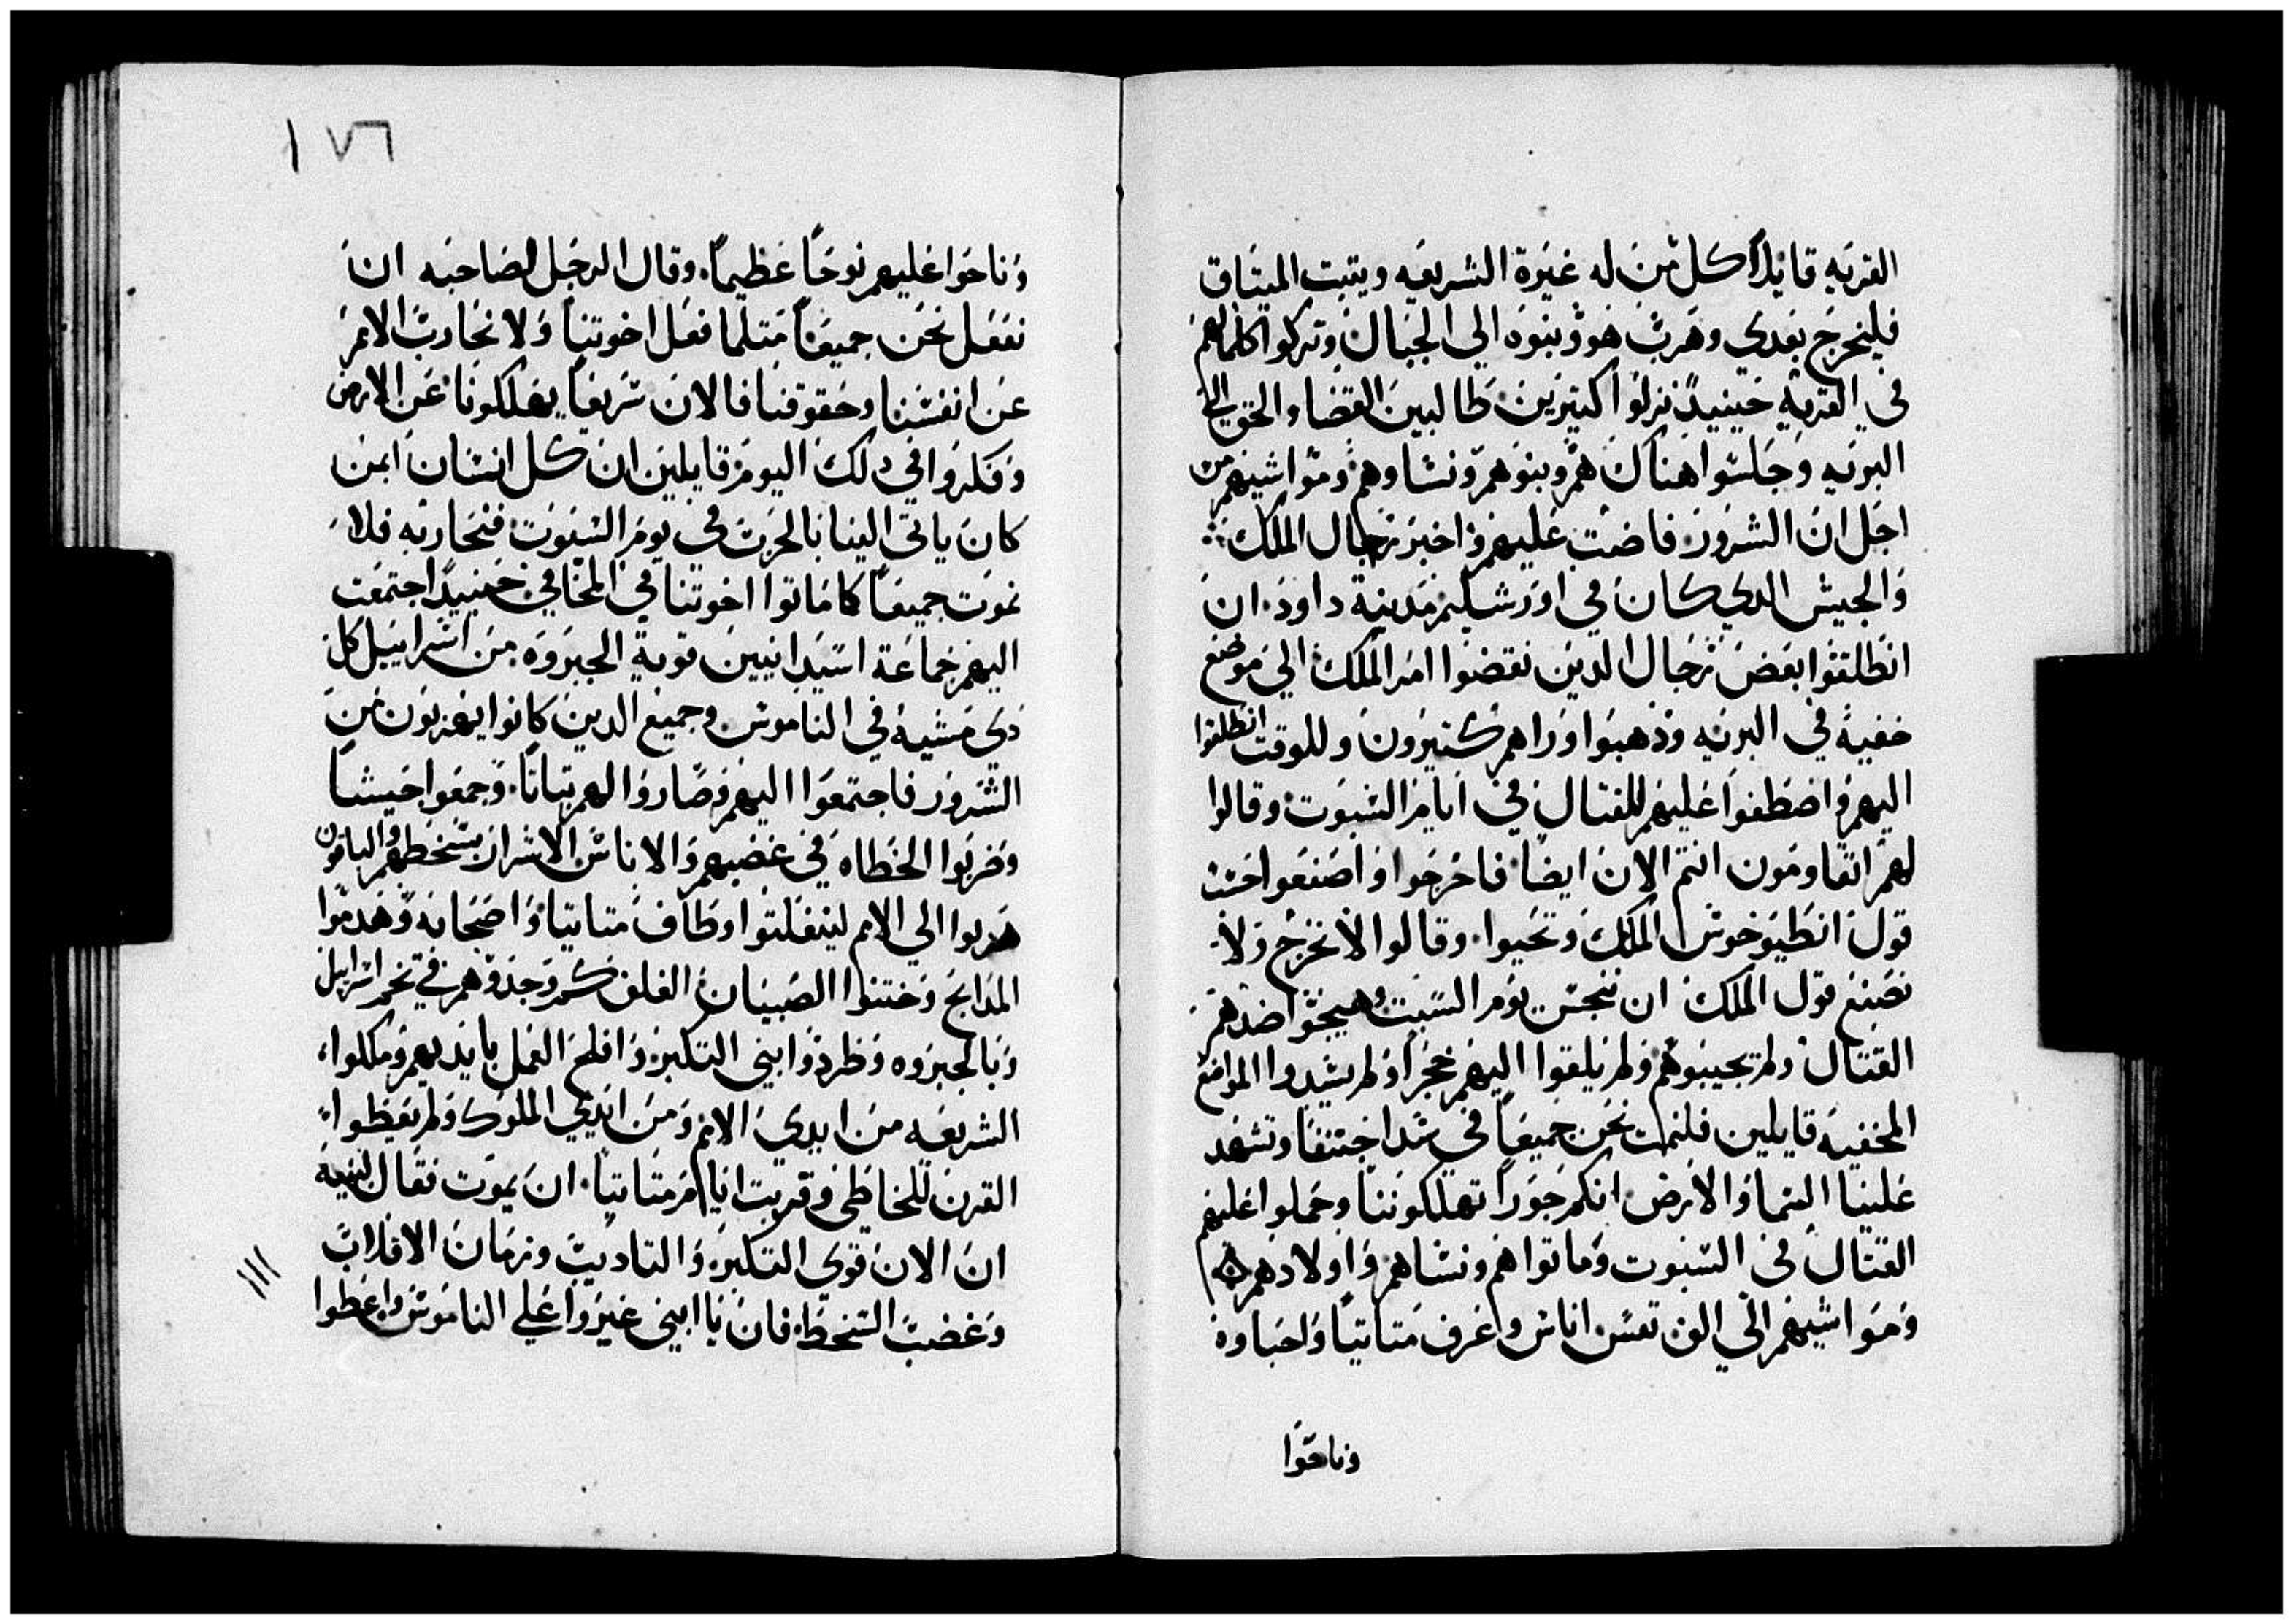 القريه قايلاً كل من له غيرة الشريعه ويتبت الميتاق
فليخرج بعدي وهرب هو وبنوه الي الجبال وتركوا كلما لهم
في القريه حينيدٍ نزلوا كتيرين طالبين القضا والحق الي
البريه وجلسوا هناك هم وبنوهم ونساوهم ومواشيهم من
اجل ان الشرور فاضت عليهم واخبر رجال الملك
والجيش الدي كان في اورشليم مدينة داود ان
انطلقوا بعض رجال الدين نقضوا امر الملك الي موضع
خفية في البريه ودهبوا وراهم كتيرون وللوقت انطلقوا
اليهم واصطفوا عليهم للقتال في ايام السبوت وقالوا
لهم اتقاومون انتم الان ايضاً فاخرجوا واصنعوا حسب
قول انطيوخوس الملك وتحيوا وقالوا لا نخرج ولا
نصنع قول الملك ان ننجس يوم السبت وهيجوا ضدهم
القتال ولم تجيبوهم ولم يلقوا اليهم حجراً ولم يسدوا المواضع
المخفيه قايلين فلنمت نحن جميعاً في سداجتنا وتشهد
علينا السما والارض انكم جوراً تهلكوننا وحملوا عليهم
القتال في السبوت وماتوا هم ونساهم واولادهم
ومواشيهم الي الف نفس اناس وعرف متاتيا واحباوه
وناحوا
١٧٦
وناحوا عليهم نوحاً عظيماً وقال الرجل لصاحبه ان
نفعل نحن جميعاً متلما فعل اخوتنا ولا نحارب الامم
عن انفسنا وحقوقنا فالان سريعاً يهلكونا عن الارض
وفكروا في دلك اليوم قايلين ان كل انسان امن
كان ياتي الينا بالحرب في يوم السبوت فنحاربه فلا
نموت جميعاً كما ماتوا اخوتنا في المخافي حينيدٍ اجتمعت
اليهم جماعة اسيدانيين قوية الجبروه من اسراييل كل
دي مشية في الناموس وجميع الدين كانوا يهربون من
الشرور فاجتمعوا اليهم وصاروا لهم تباتاً وجمعوا جيشاً
وضربوا الخطاه في غضبهم والاناس الاشرار بسخطهم والباقون
هربوا الي الامم لينفلتوا وطاف متاتيا واصحابه وهدموا
المدابح وختنوا الصبيان الغلف كم وجدوهم في تخم اسراييل
وبالجبروه وطردوا بني التكبر وافلح العمل بايديهم وملكوا
الشريعه من ايدي الامم ومن ايدي الملوك ولم يعطوا
القرن للخاطي وقربت ايام متاتيا ان يموت فقال لبنيه
ان الان قوي التكبر والتاديب وزمان الاقلاب
وغضب السخط فالان يا ابني غيروا علي الناموس واعطوا